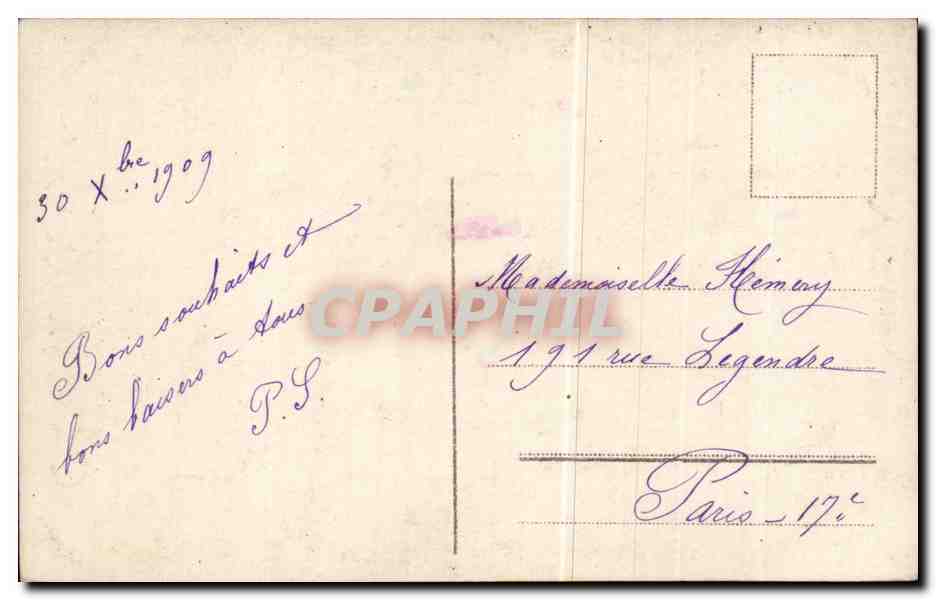 30 Xbre 1909
Bons souhaits et
bons baisers à tous
P.S.
CPAPHIL
Mademoiselle Hémery
191 rue Legendre
Paris - 17e